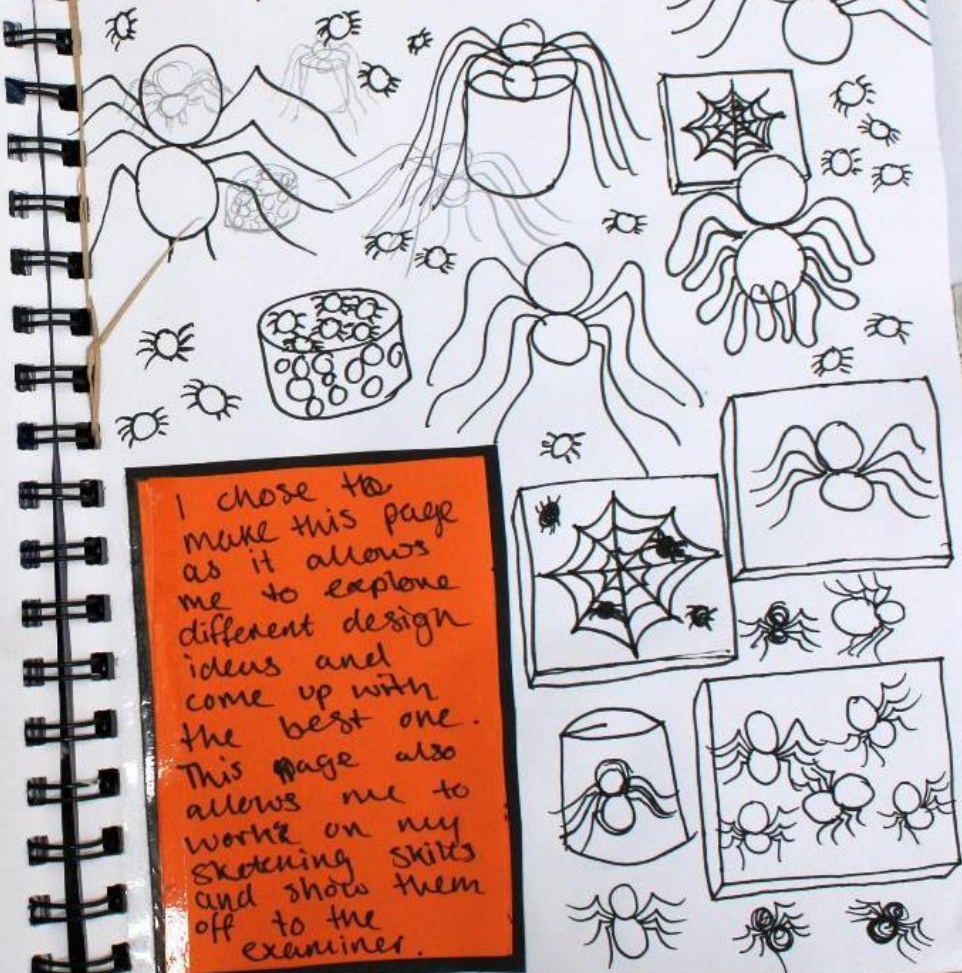 I chose to
make this page
as it allows
me to explore
different design
ideas and
come up with
the best one.
This page also
allows me to
work on my
sketching skills
and show them
off to the
examiner.